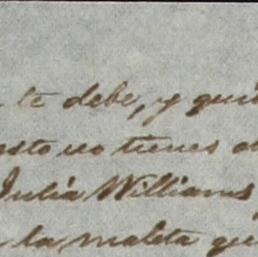 te debe, y qui
esto no tienes
Julia Williams
la maleta que